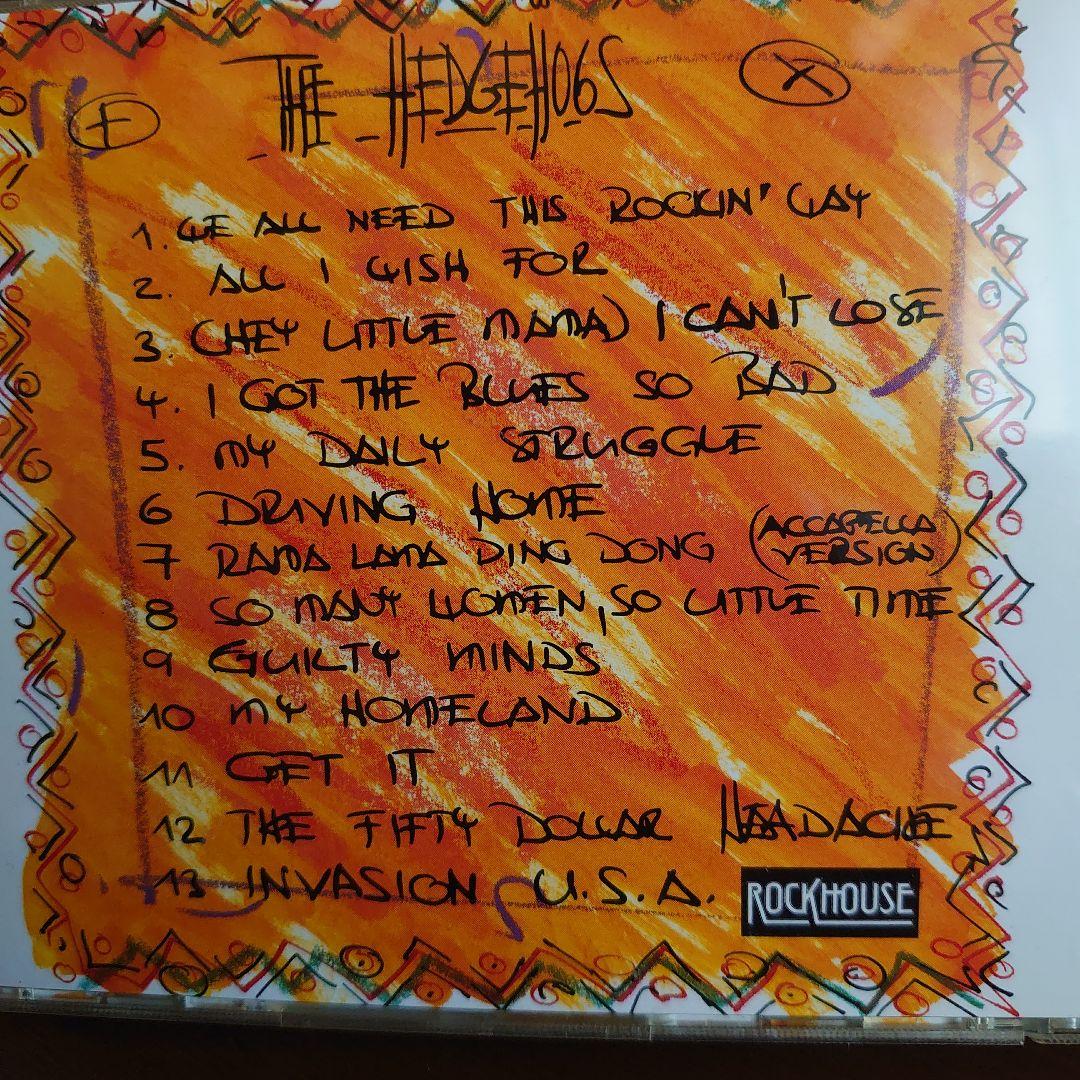 THE HEDGEHOGS
F X
1. WE ALL NEED THIS ROCKIN' WAY
2. ALL I WISH FOR
3. (HEY LITTLE MAMA) I CAN'T LOSE
4. I GOT THE BLUES SO BAD
5. MY DAILY STRUGGLE
6 DRIVING HOME
7 RAMA LAMA DING DONG (ACCAPELLA VERSION)
8 SO MANY WOMEN, SO LITTLE TIME
9 GUILTY MINDS
10 MY HOMELAND
11 GET IT
12 THE FIFTY DOLLAR HEADACHE
13 INVASION U.S.A.
ROCKHOUSE